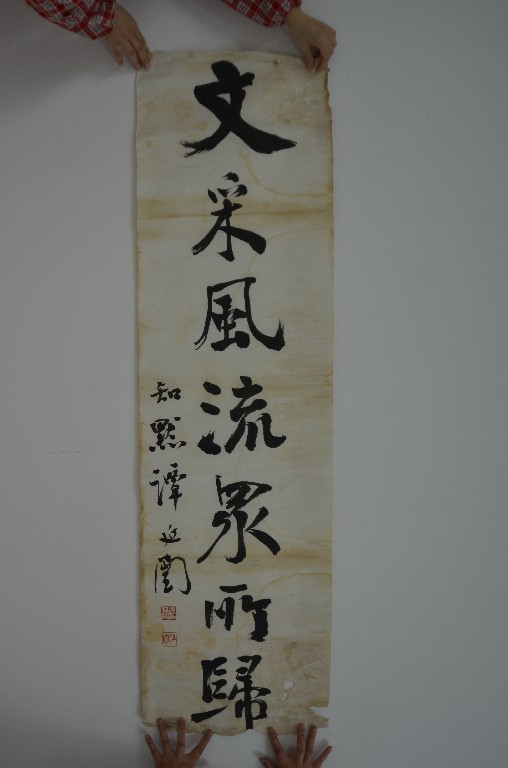 文采風流眾所歸
知默譚延闓